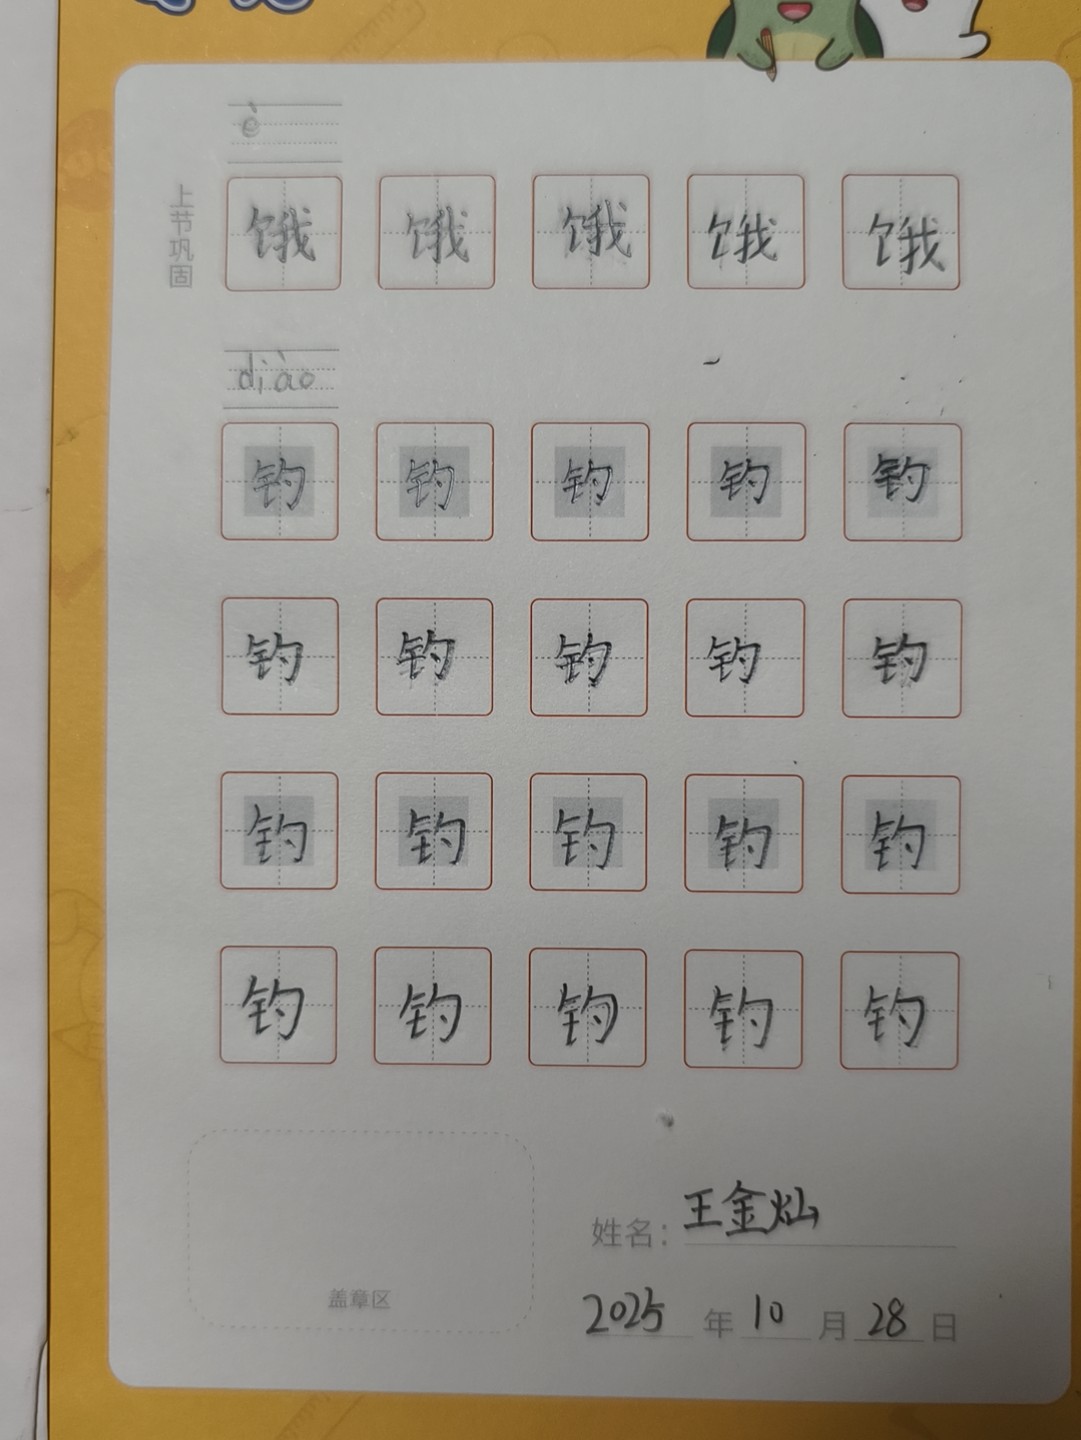 è
上节巩固
饿 饿 饿 饿 饿
diào
钓 钓 钓 钓 钓
钓 钓 钓 钓 钓
钓 钓 钓 钓 钓
钓 钓 钓 钓 钓
姓名：王金灿
盖章区
2025 年 10 月 28 日